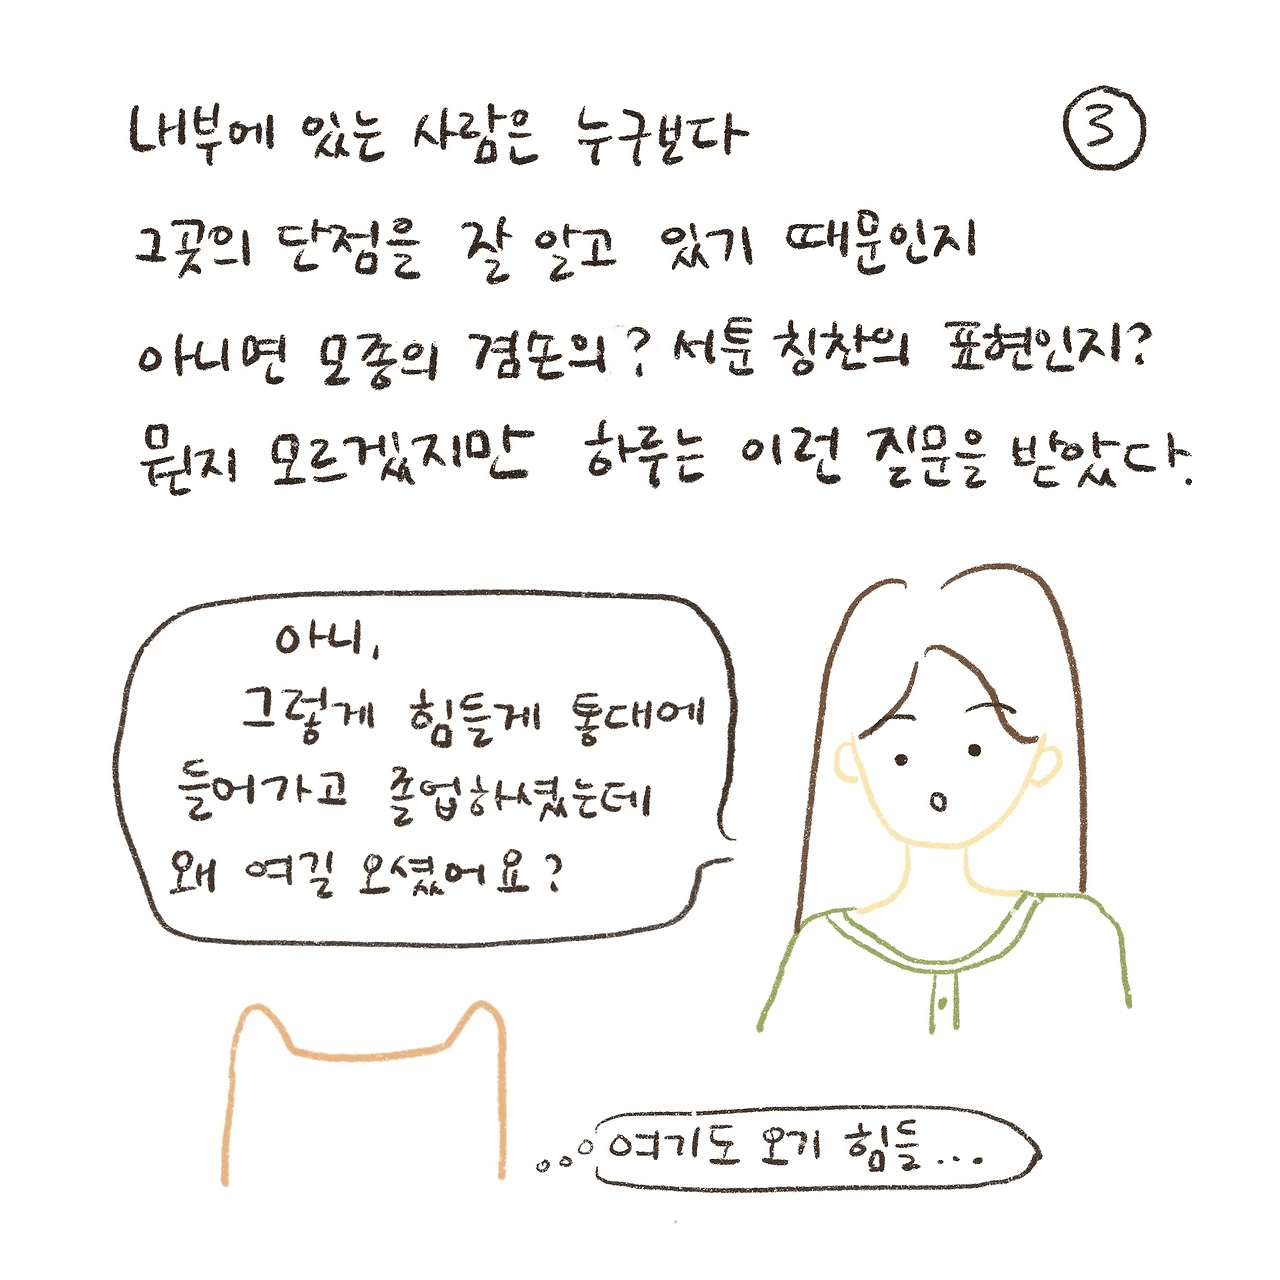 내부에 있는 사람은 누구보다
③
그곳의 단점을 잘 알고 있기 때문인지
아니면 모종의 겸손의? 서툰 칭찬의 표현인지?
뭔지 모르겠지만 하루는 이런 질문을 받았다.
아니,
그렇게 힘들게 통대에
들어가고 졸업하셨는데
왜 여길 오셨어요?
여기도 오기 힘듦...